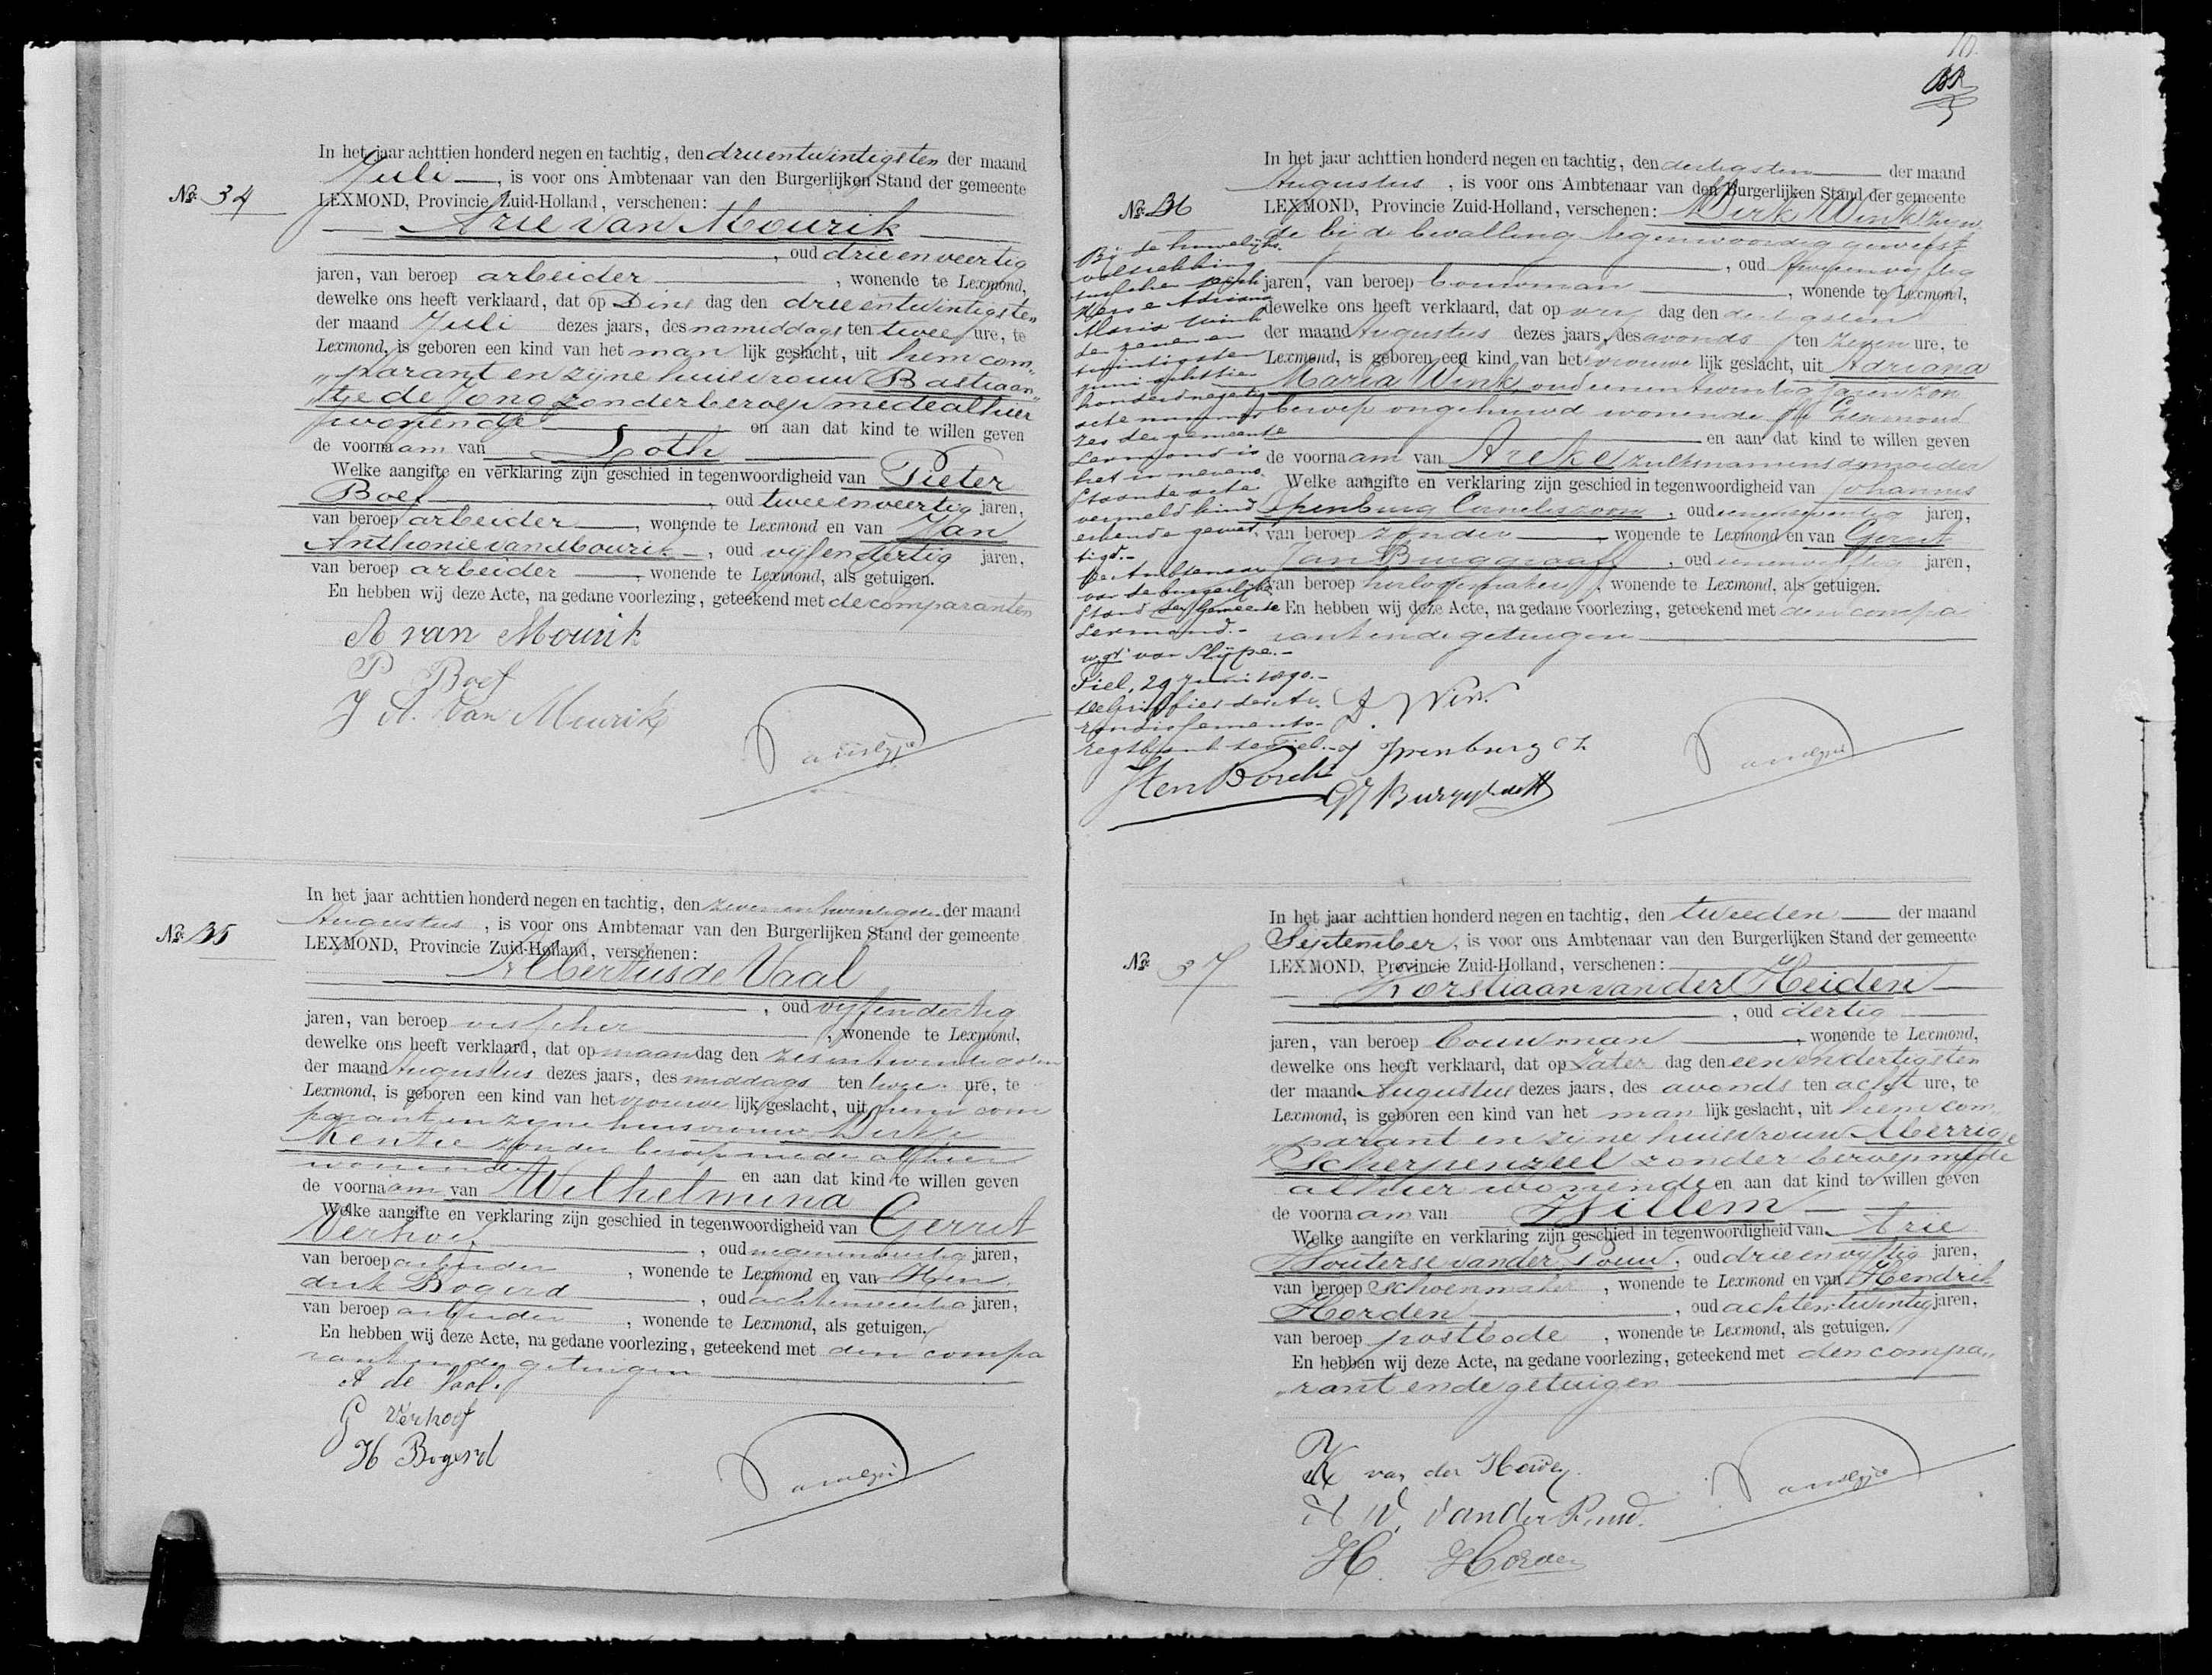 In het jaar achttien honderd negen en tachtig, den drieentwintigsten der maand
Juli, is voor ons Ambtenaar van den Burgerlijken Stand der gemeente
No. 34
LEXMOND, Provincie Zuid-Holland, verschenen:
Arie van Mourik
, oud drieenveertig
jaren, van beroep arbeider, wonende te Lexmond,
dewelke ons heeft verklaard, dat op Dins dag den drieentwintigsten
der maand Juli dezes jaars, des namiddags ten twee ure, te
Lexmond, is geboren een kind van het man lijk geslacht, uit hem com„
„parant en zijne huisvrouw Bastiaan„
„tje de Jong zonder beroep mede alhier
wonende en aan dat kind te willen geven
de voornaam van Loth
Welke aangifte en verklaring zijn geschied in tegenwoordigheid van Pieter
Boef, oud tweeenveertig jaren,
van beroep arbeider, wonende te Lexmond en van Jan
Anthonie van Mourik, oud vijfendertig jaren,
van beroep arbeider, wonende te Lexmond, als getuigen.
En hebben wij deze Acte, na gedane voorlezing, geteekend met de comparanten
A van Mourik
P Boef
J A. van Mourik
van Slijpe
In het jaar achttien honderd negen en tachtig, den zevenentwintigsten der maand
Augustus, is voor ons Ambtenaar van den Burgerlijken Stand der gemeente
No. 35
LEXMOND, Provincie Zuid-Holland, verschenen:
Albertus de Vaal
, oud vijfendertig
jaren, van beroep visscher, wonende te Lexmond,
dewelke ons heeft verklaard, dat op maandag den zesentwintigsten
der maand Augustus dezes jaars, des middags ten twee ure, te
Lexmond, is geboren een kind van het vrouwe lijk geslacht, uit hem com
parant en zijne huisvrouw Dirkje
Kentie zonder beroep mede alhier
wonende en aan dat kind te willen geven
de voornaam van Wilhelmina
Welke aangifte en verklaring zijn geschied in tegenwoordigheid van Gerrit
Verhoef, oud jaren,
van beroep arbeider, wonende te Lexmond en van Hen
drik Bogerd, oud jaren,
van beroep arbeider, wonende te Lexmond, als getuigen.
En hebben wij deze Acte, na gedane voorlezing, geteekend met den compa
rant en de getuigen
A de Vaal.
G Verhoef
H Bogerd
van Slijpe
10.
In het jaar achttien honderd negen en tachtig, den dertigsten der maand
Augustus, is voor ons Ambtenaar van den Burgerlijken Stand der gemeente
No. 36
LEXMOND, Provincie Zuid-Holland, verschenen: Dirk Wink zijn
de bij de bevalling tegenwoordig geweest
, oud tweeenvijftig
jaren, van beroep bouwman, wonende te Lexmond,
dewelke ons heeft verklaard, dat op vrij dag den dertigsten
der maand Augustus dezes jaars, des avonds ten zeven ure, te
Lexmond, is geboren een kind van het vrouwe lijk geslacht, uit Adriana
Maria Wink, oud eenentwintig jaren zon
beroep ongehuwd wonende te Lexmond
en aan dat kind te willen geven
de voornaam van Areke zulks namens de moeder
Welke aangifte en verklaring zijn geschied in tegenwoordigheid van Johannis
Spenburg Corneliszoon, oud jaren,
van beroep zonder, wonende te Lexmond en van Gerrit
Jan Burggraaff, oud eenenvijftig jaren,
van beroep horlogemaker, wonende te Lexmond, als getuigen.
En hebben wij deze Acte, na gedane voorlezing, geteekend met den compa
rant en de getuigen
Bij de huwelijks
voltrekking
tusschen
en Adriana
Maria Wink
den zeven en
twintigsten
Juni achttien
honderd negentig
acte nummer
zes der gemeente
Lexmond is
het in nevens
staande acte
vermeld kind
erkend en gewet
tigd.-
De Ambtenaar
van de Burgerlijke
Stand der Gemeente
Lexmond.-
wgt. van Slijpe.-
Tiel, 29 Juni 1890.-
De Griffier der Ar.
rondissements.
regtbank te Tiel.-
Hen Bosch
D. Wink
J Spenburg Cz
GJ Burggraaff
van Slijpe
In het jaar achttien honderd negen en tachtig, den tweeden der maand
September, is voor ons Ambtenaar van den Burgerlijken Stand der gemeente
No. 37
LEXMOND, Provincie Zuid-Holland, verschenen:
Korstiaan van der Heiden
, oud dertig
jaren, van beroep bouwman, wonende te Lexmond,
dewelke ons heeft verklaard, dat op Zater dag den eenendertigsten
der maand Augustus dezes jaars, des avonds ten acht ure, te
Lexmond, is geboren een kind van het man lijk geslacht, uit hem com„
„parant en zijne huisvrouw Merrigje
Scherpenzeel zonder beroep mede
alhier wonende en aan dat kind te willen geven
de voornaam van Willem
Welke aangifte en verklaring zijn geschied in tegenwoordigheid van Arie
Wouterse van der Pouw, oud drieenvijftig jaren,
van beroep schoenmaker, wonende te Lexmond en van Hendrik
Horden, oud achtentwintig jaren,
van beroep postbode, wonende te Lexmond, als getuigen.
En hebben wij deze Acte, na gedane voorlezing, geteekend met den compa„
„rant en de getuigen
K van der Heiden
A W. van der Pouw.
H. Horden
van Slijpe